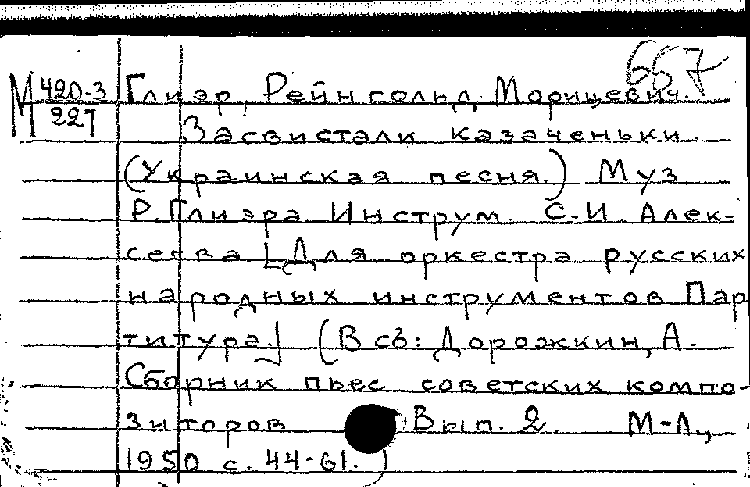 657
М 420-3 Глиэр, Рейнгольд Морицевич.
227
Засвистали казаченьки
(Украинская песня.) Муз
Р. Глиэра Инструм. С.И. Алек-
сеева [Для оркестра русских
народных инструментов Пар
титура] (В сб: Дорожкин, А.
Сборник пьес советских компо-
зиторов Вып. 2. М-Л.,
1950 с. 44-61.)